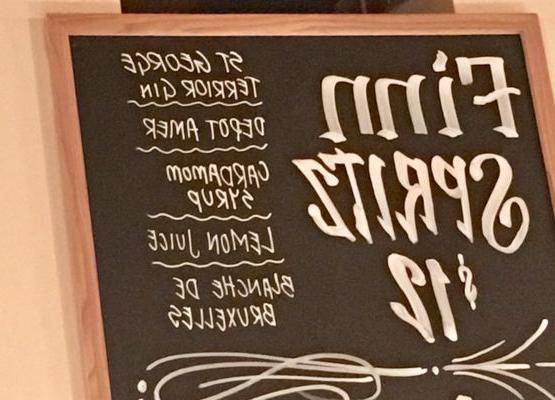 Finn
SPRITZ
$12
ST GEORGE
TERRIOR GIN
DEPOT AMER
CARDAMOM
SYRUP
LEMON JUICE
BLANCHE DE
BRUXELLES